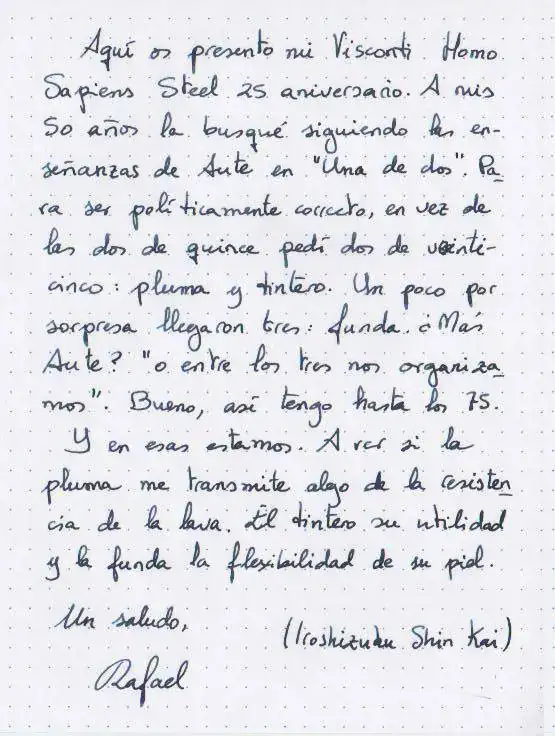 Aquí os presento mi Visconti Homo
Sapiens Steel 25 aniversario. A mis
50 años la busqué siguiendo las en-
señanzas de Aute en "Una de dos". Pa_
ra ser políticamente correcto, en vez de
las dos de quince pedí dos de veinti-
cinco: pluma y tintero. Un poco por
sorpresa llegaron tres: funda. ¿Más
Aute? "o entre los tres nos organiza_
mos". Bueno, así tengo hasta los 75.
Y en esas estamos. A ver si la
pluma me transmite algo de la resisten_
cia de la lava. El tintero su utilidad
y la funda la flexibilidad de su piel.
Un saludo,
(Iroshizuku Shin Kai)
Rafael